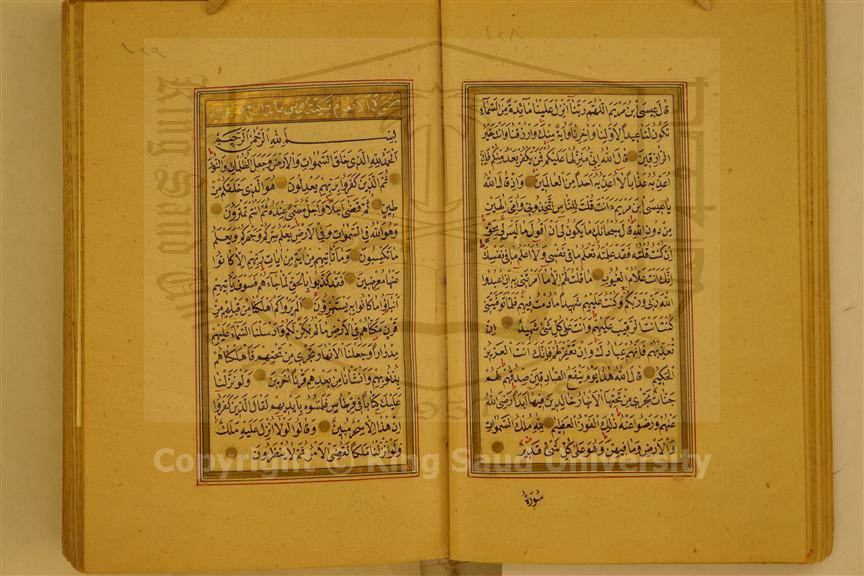 ١٢٨
قال عيسى ابن مريم اللهم ربنا انزل علينا مائدة من السماء
تكون لنا عيدا لاولنا واخرنا واية منك وارزقنا وانت خير
الرازقين قال الله اني منزلها عليكم فمن يكفر بعد منكم فاني
اعذبه عذابا لا اعذبه احدا من العالمين واذ قال الله
يا عيسى ابن مريم ءانت قلت للناس اتخذوني وامي الهين
من دون الله قال سبحانك ما يكون لي ان اقول ما ليس لي بحق
ان كنت قلته فقد علمته تعلم ما في نفسي ولا اعلم ما في نفسك
انك انت علام الغيوب ما قلت لهم الا ما امرتني به ان اعبدوا
الله ربي وربكم وكنت عليهم شهيدا ما دمت فيهم فلما توفيتني
كنت انت الرقيب عليهم وانت على كل شئ شهيد ان
تعذبهم فانهم عبادك وان تغفر لهم فانك انت العزيز
الحكيم قال الله هذا يوم ينفع الصادقين صدقهم لهم
جنات تجري من تحتها الانهار خالدين فيها ابدا رضي الله
عنهم ورضوا عنه ذلك الفوز العظيم لله ملك السموات
والارض وما فيهن وهو على كل شئ قدير
سورة
١٢٩
سورة الانعام مكية وهي مائة
بسم الله الرحمن الرحيم
الحمد لله الذي خلق السموات والارض وجعل الظلمات والنور
ثم الذين كفروا بربهم يعدلون هو الذي خلقكم من
طين ثم قضى اجلا واجل مسمى عنده ثم انتم تمترون
وهو الله في السموات وفي الارض يعلم سركم وجهركم ويعلم
ما تكسبون وما تاتيهم من اية من ايات ربهم الا كانوا
عنها معرضين فقد كذبوا بالحق لما جاءهم فسوف ياتيهم
انباؤا ما كانوا به يستهزؤن الم يروا كم اهلكنا من قبلهم من
قرن مكناهم في الارض ما لم نمكن لكم وارسلنا السماء عليهم
مدرارا وجعلنا الانهار تجري من تحتهم فاهلكناهم
بذنوبهم وانشانا من بعدهم قرنا اخرين ولو نزلنا
عليك كتابا في قرطاس فلمسوه بايديهم لقال الذين كفروا
ان هذا الا سحر مبين وقالوا لولا انزل عليه ملك
ولو انزلنا ملكا لقضي الامر ثم لا ينظرون
King Saud University
1957
Copyright © King Saud University